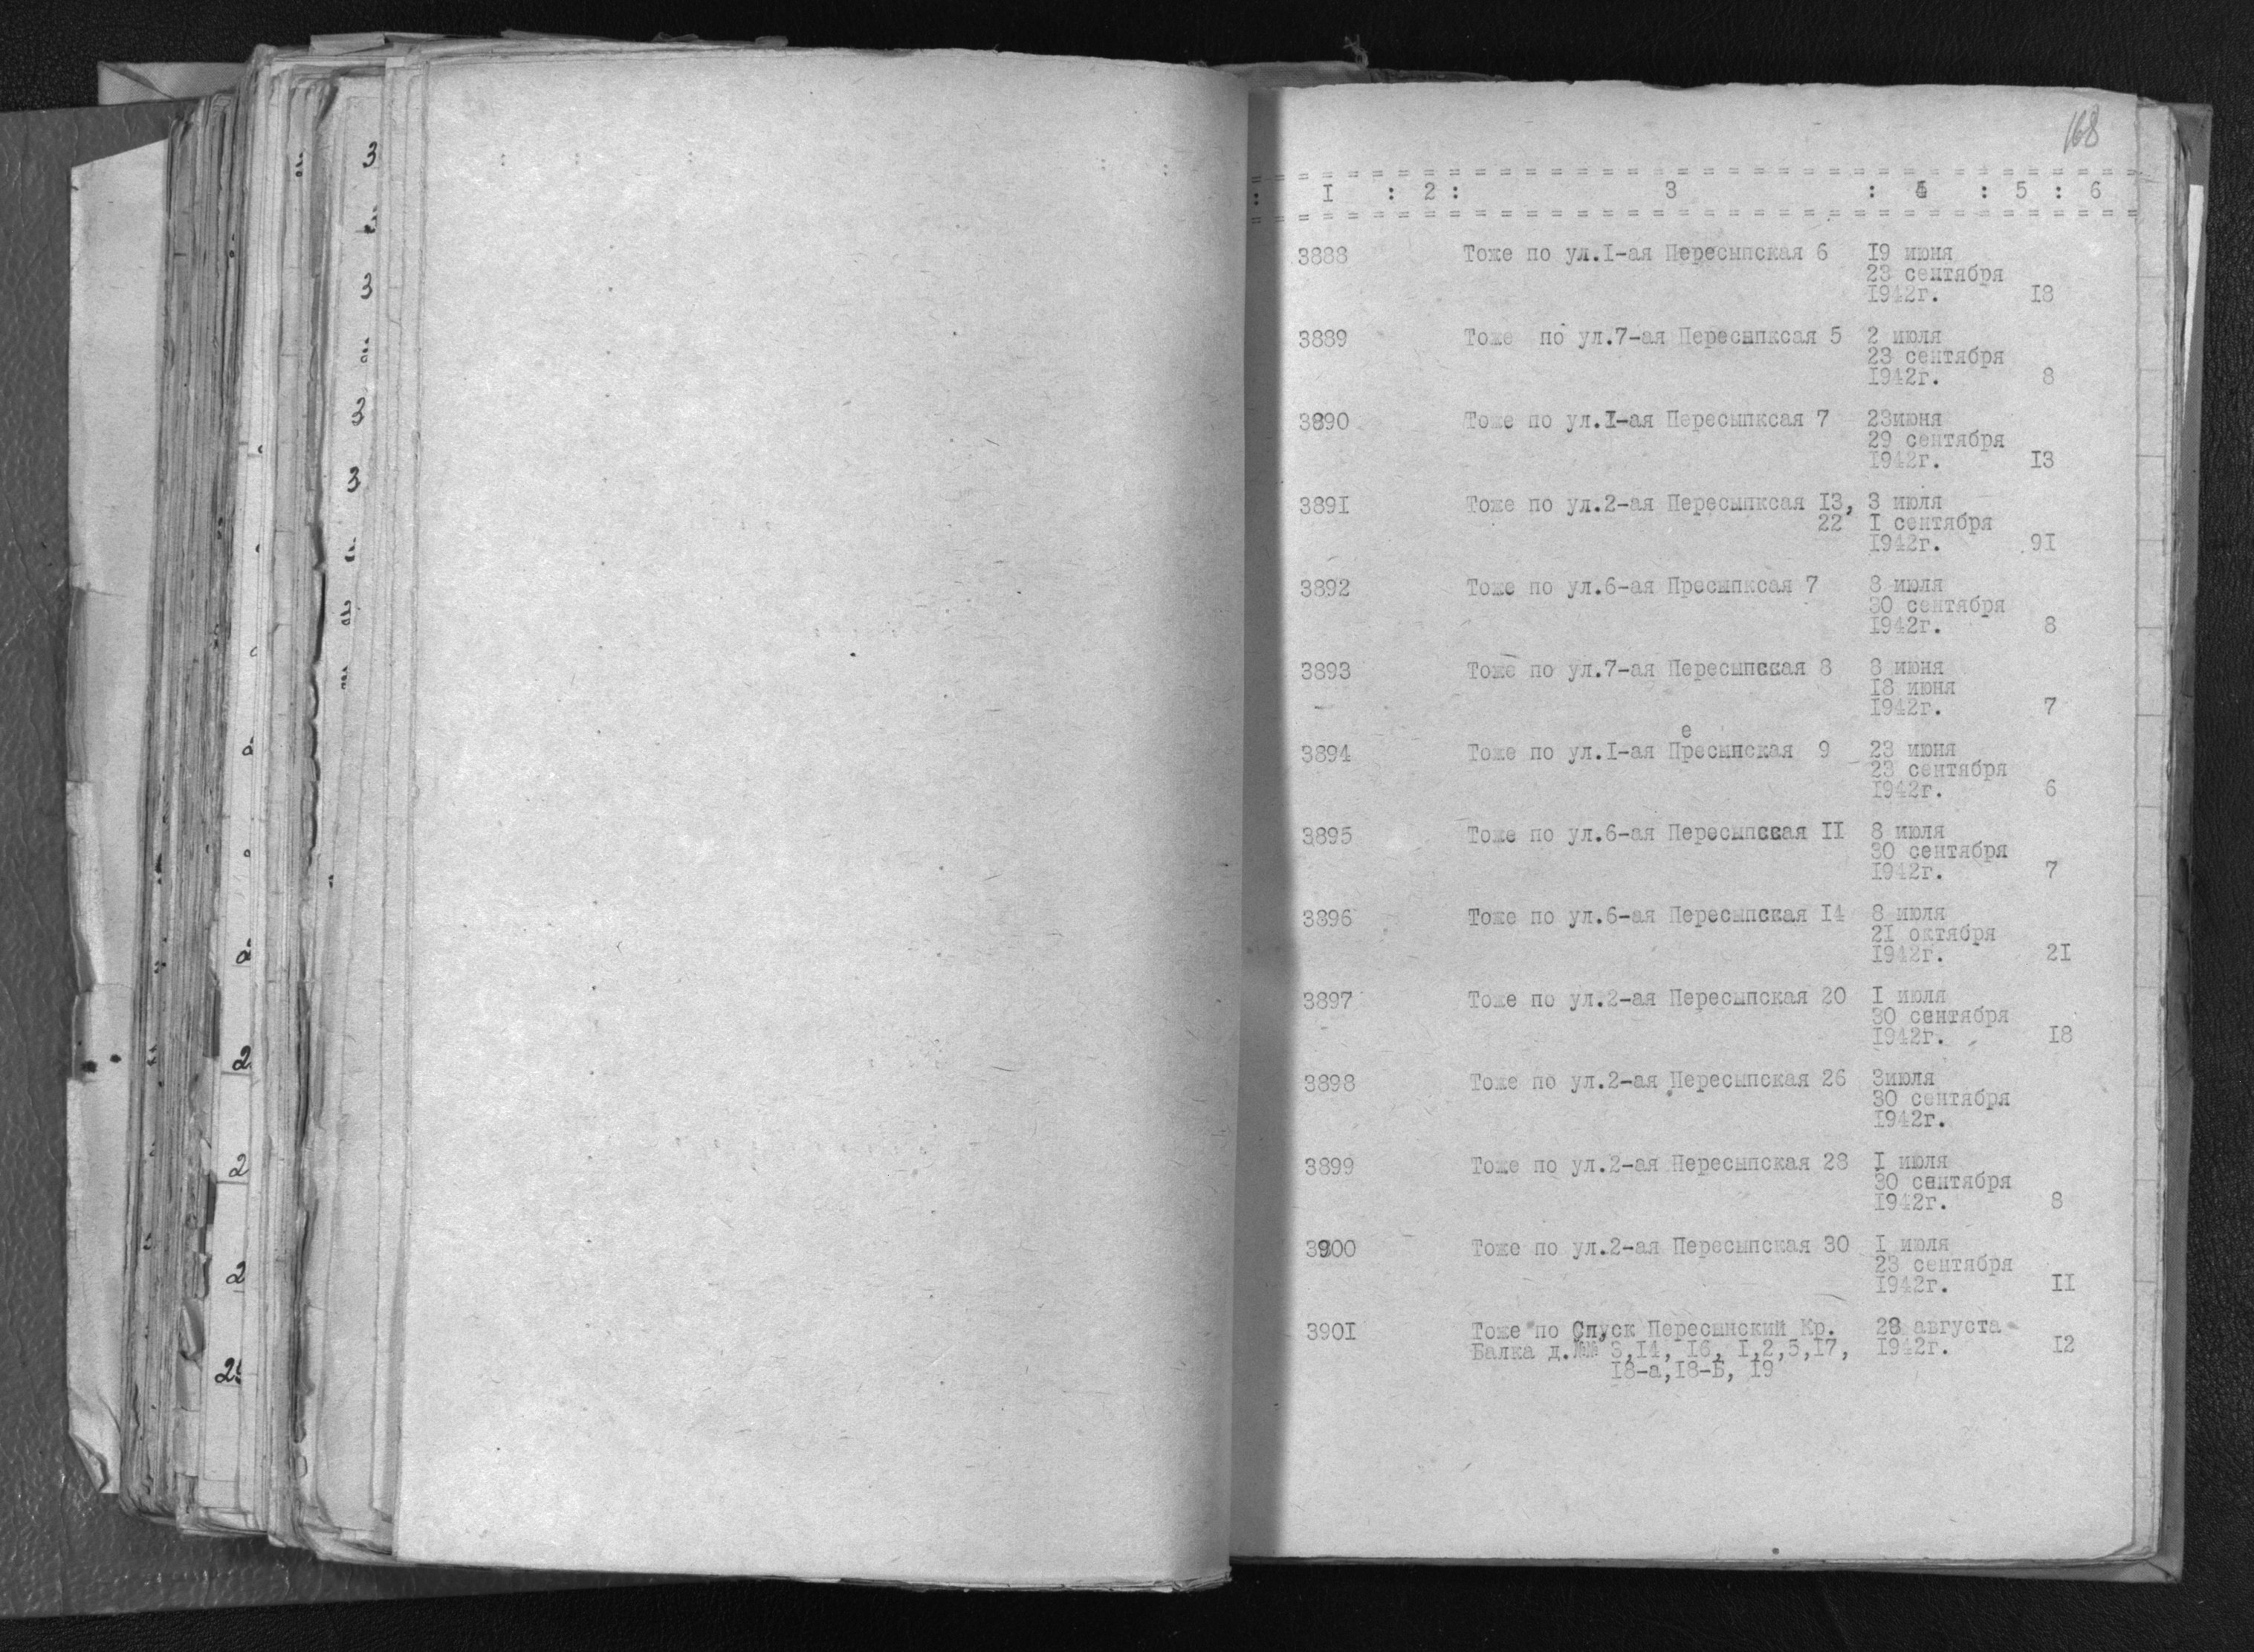 168
: I : 2 : 3 : 4 : 5 : 6
3888 Тоже по ул.I-ая Пересыпская 6 I9 июня
23 сентября
I942г. I8
3889 Тоже по ул.7-ая Пересыпксая 5 2 июля
23 сентября
I942г. 8
3890 Тоже по ул.I-ая Пересыпксая 7 23июня
29 сентября
I942г. I3
389I Тоже по ул.2-ая Пересыпксая I3, 3 июля
22 I сентября
I942г. 9I
3892 Тоже по ул.6-ая Пресыпксая 7 8 июля
30 сентября
I942г. 8
3893 Тоже по ул.7-ая Пересыпская 8 8 июня
I8 июня
I942г. 7
3894 Тоже по ул.I-ая Пересыпская 9 23 июня
23 сентября
I942г. 6
3895 Тоже по ул.6-ая Пересыпская II 8 июля
30 сентября
I942г. 7
3896 Тоже по ул.6-ая Пересыпская I4 8 июля
2I октября
I942г. 2I
3897 Тоже по ул.2-ая Пересыпская 20 I июля
30 сентября
I942г. I8
3898 Тоже по ул.2-ая Пересыпская 26 3июля
30 сентября
I942г.
3899 Тоже по ул.2-ая Пересыпская 28 I июля
30 сентября
I942г. 8
3900 Тоже по ул.2-ая Пересыпская 30 I июля
23 сентября
I942г. II
390I Тоже по Спуск Пересыпский Кр. 28 августа
Балка д.№№ 8,I4, I6, I,2,5,I7, I942г. I2
I8-а,I8-Б, I9